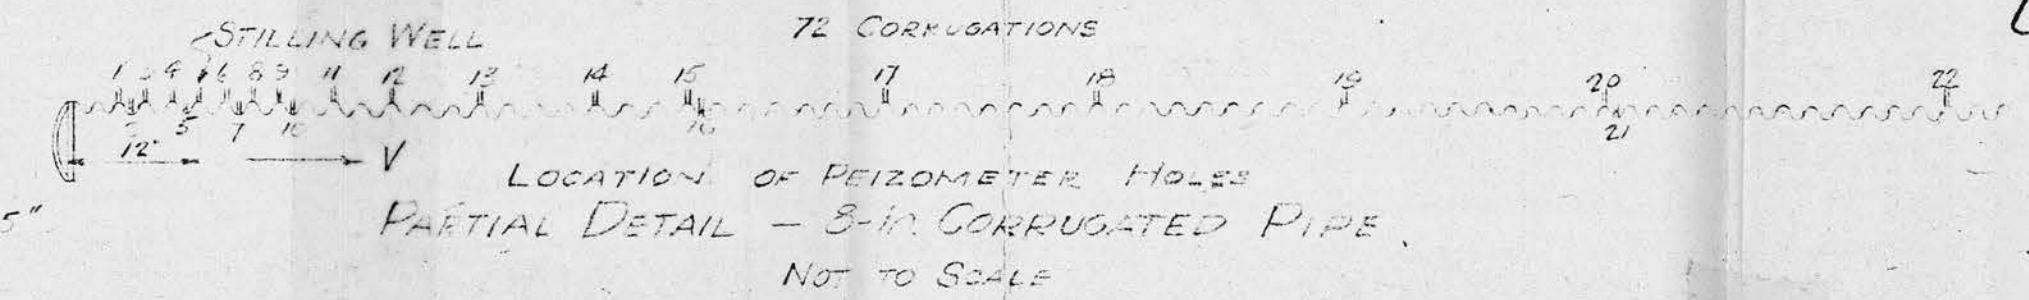 STILLING WELL
72 CORRUGATIONS
1 3 4 6 8 9 11 12 13 14 15 17 18 19 20 22
5 7 10 16 21
12"
V
LOCATION OF PEIZOMETER HOLES
5"
PARTIAL DETAIL — 8-in CORRUGATED PIPE.
NOT TO SCALE